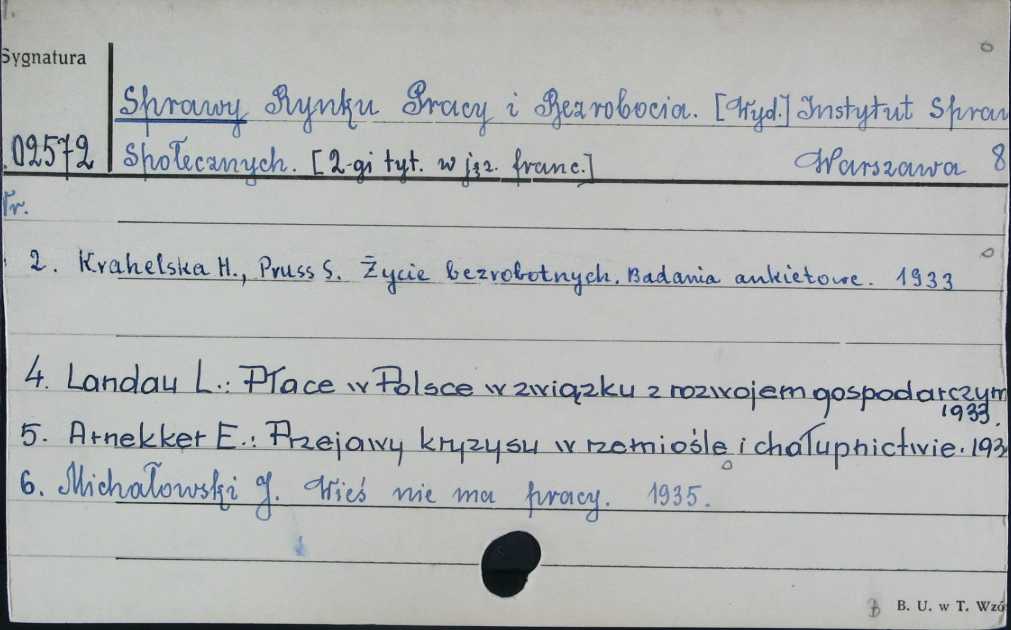 Sygnatura
Sprawy Rynku Pracy i Bezrobocia. [Wyd.] Instytut Spraw
02572 Społecznych. [2-gi tyt. w jęz. franc.] Warszawa 8
Nr.
2. Krahelska H., Pruss S. Życie bezrobotnych. Badania ankietowe. 1933
4. Landau L.: Płace w Polsce w związku z rozwojem gospodarczym
1933.
5. Arnekker E.: Przejawy kryzysu w rzemiośle i chałupnictwie. 193
6. Michałowski J. Wieś nie ma pracy. 1935.
B. U. w T. Wzó